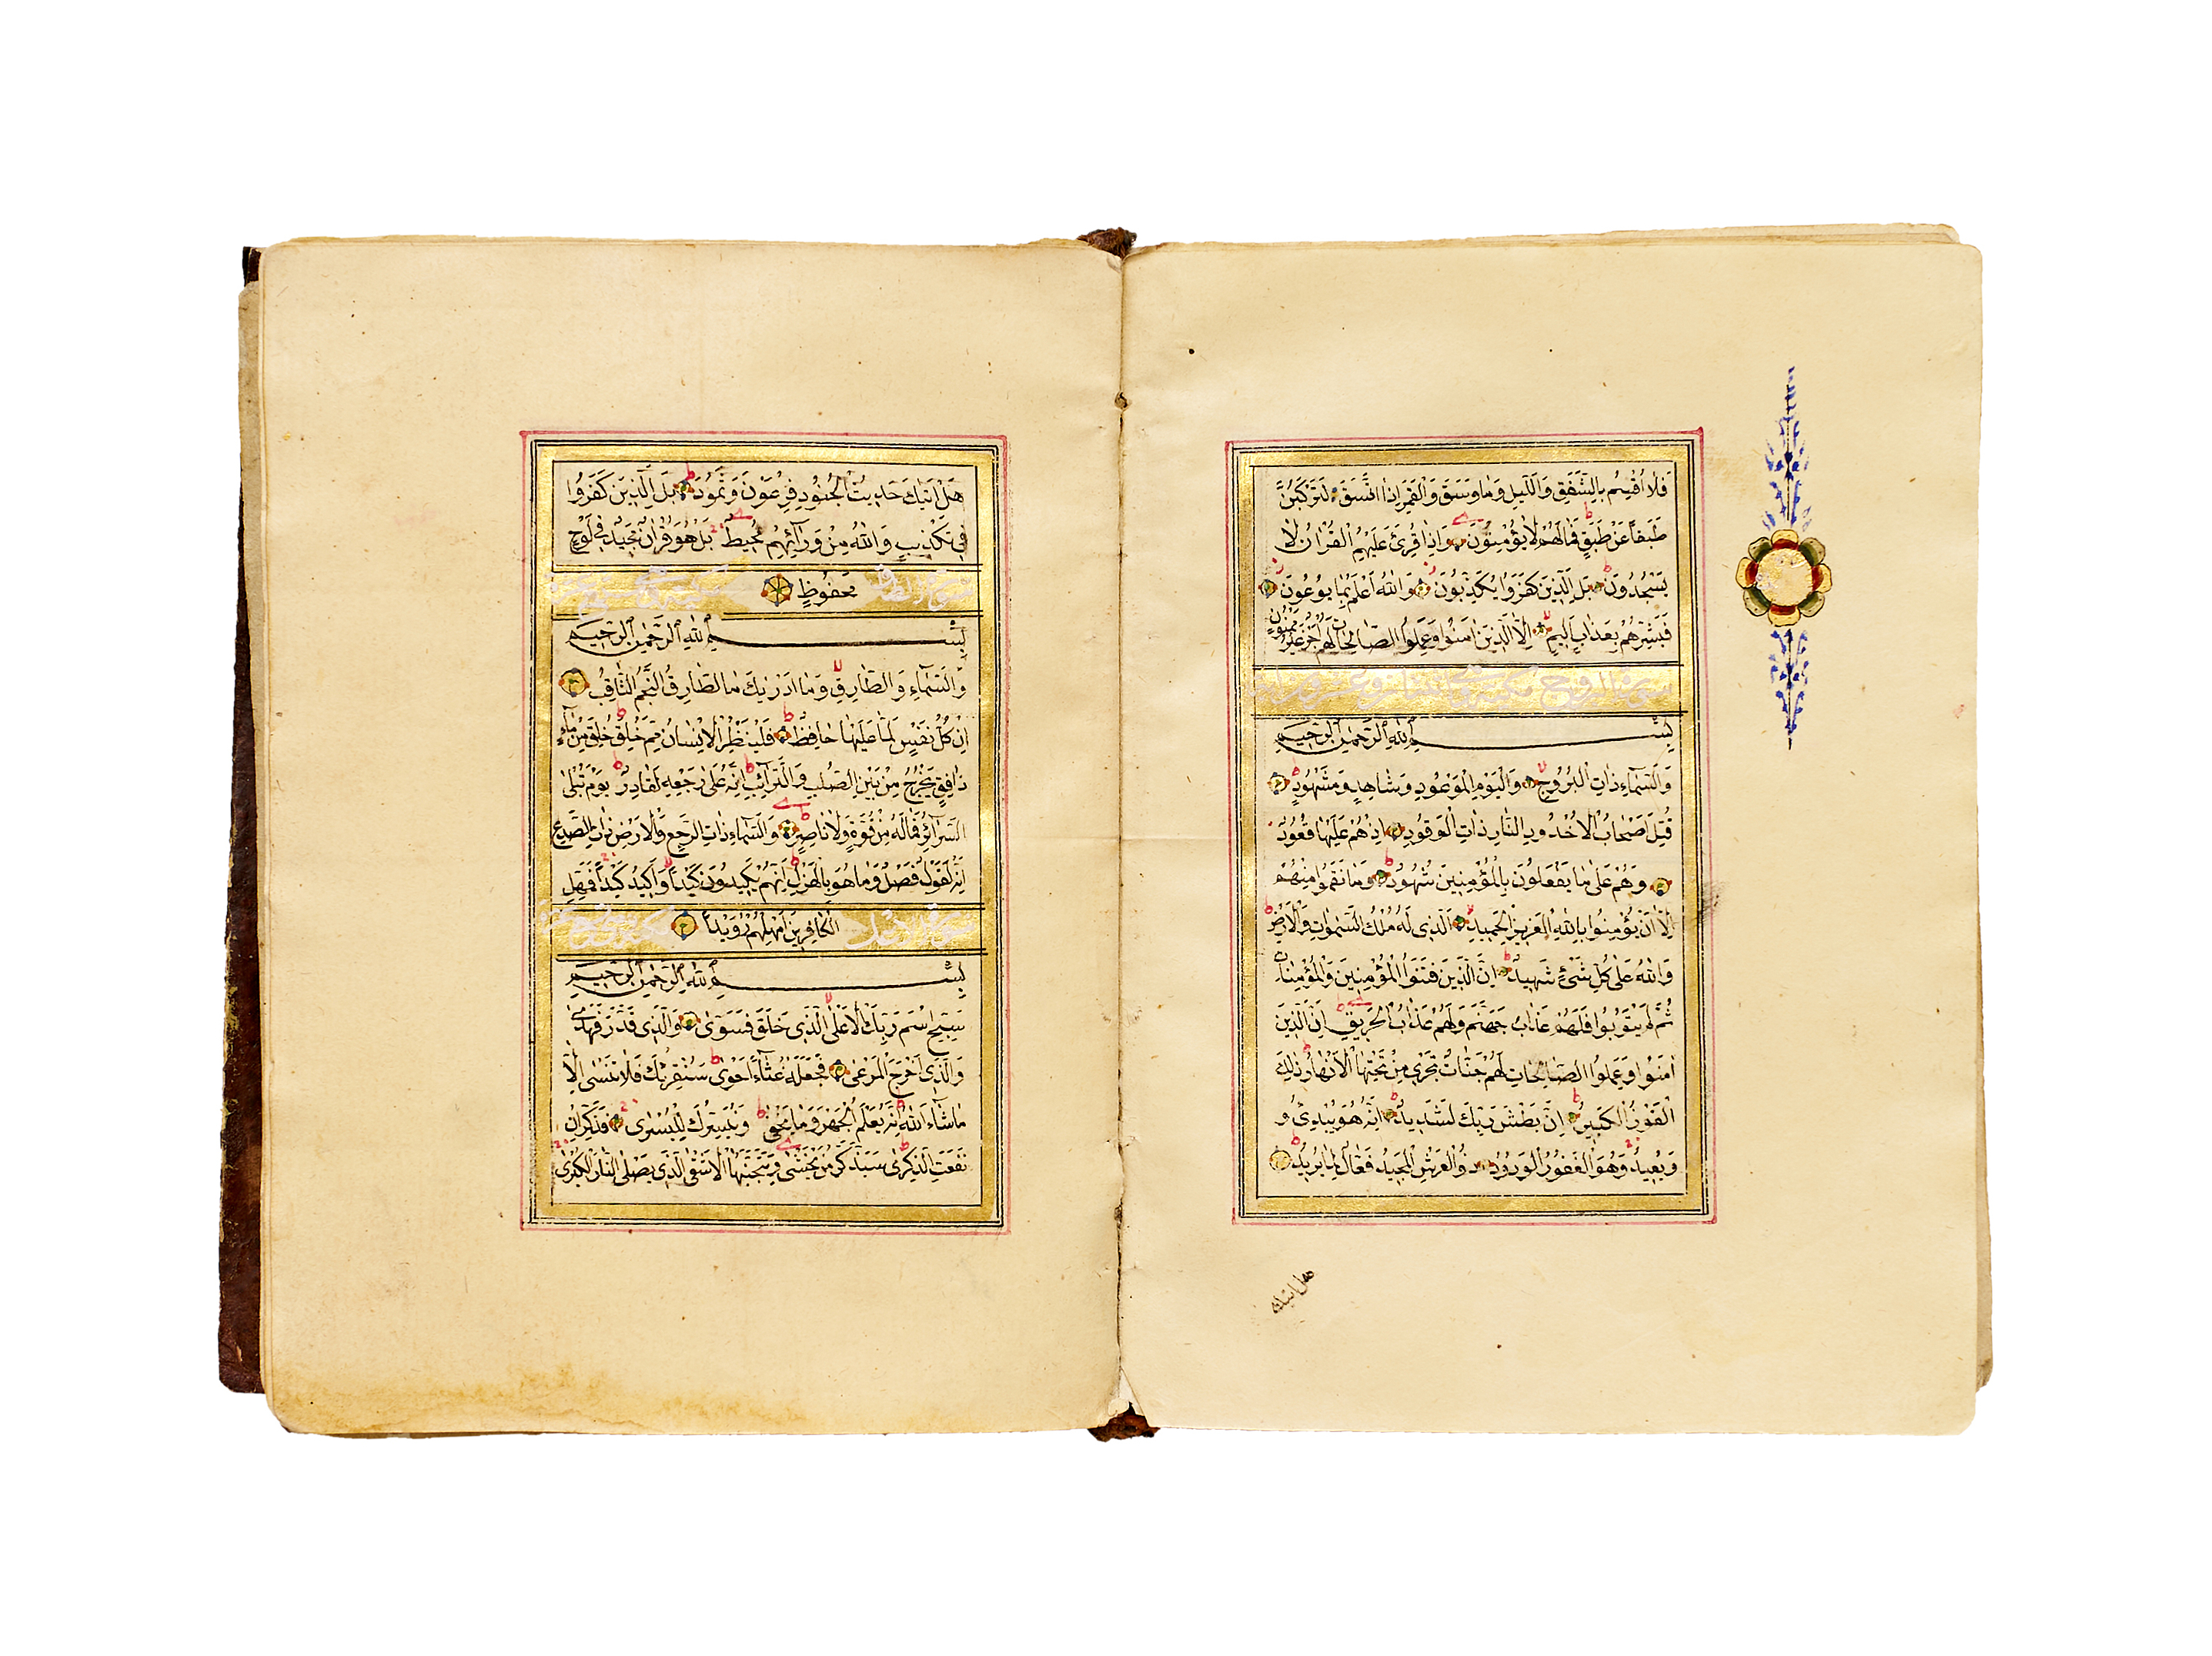 فَلَا أُقْسِمُ بِالشَّفَقِ وَاللَّيْلِ وَمَا وَسَقَ وَالْقَمَرِ إِذَا اتَّسَقَ لَتَرْكَبُنَّ
طَبَقًا عَنْ طَبَقٍ فَمَا لَهُمْ لَا يُؤْمِنُونَ وَإِذَا قُرِئَ عَلَيْهِمُ الْقُرْاٰنُ لَا
يَسْجُدُونَ بَلِ الَّذِينَ كَفَرُوا يُكَذِّبُونَ وَاللهُ أَعْلَمُ بِمَا يُوعُونَ
فَبَشِّرْهُمْ بِعَذَابٍ أَلِيمٍ إِلَّا الَّذِينَ اٰمَنُوا وَعَمِلُوا الصَّالِحَاتِ لَهُمْ أَجْرٌ غَيْرُ مَمْنُونٍ
سورة البروج مكية وهي
بِسْمِ اللهِ الرَّحْمٰنِ الرَّحِيمِ
وَالسَّمَاءِ ذَاتِ الْبُرُوجِ وَالْيَوْمِ الْمَوْعُودِ وَشَاهِدٍ وَمَشْهُودٍ
قُتِلَ أَصْحَابُ الْأُخْدُودِ النَّارِ ذَاتِ الْوَقُودِ إِذْ هُمْ عَلَيْهَا قُعُودٌ
وَهُمْ عَلَىٰ مَا يَفْعَلُونَ بِالْمُؤْمِنِينَ شُهُودٌ وَمَا نَقَمُوا مِنْهُمْ
إِلَّا أَنْ يُؤْمِنُوا بِاللهِ الْعَزِيزِ الْحَمِيدِ الَّذِي لَهُ مُلْكُ السَّمٰوَاتِ وَالْأَرْضِ
وَاللهُ عَلَىٰ كُلِّ شَيْءٍ شَهِيدٌ إِنَّ الَّذِينَ فَتَنُوا الْمُؤْمِنِينَ وَالْمُؤْمِنَاتِ
ثُمَّ لَمْ يَتُوبُوا فَلَهُمْ عَذَابُ جَهَنَّمَ وَلَهُمْ عَذَابُ الْحَرِيقِ إِنَّ الَّذِينَ
اٰمَنُوا وَعَمِلُوا الصَّالِحَاتِ لَهُمْ جَنَّاتٌ تَجْرِي مِنْ تَحْتِهَا الْأَنْهَارُ ذٰلِكَ
الْفَوْزُ الْكَبِيرُ إِنَّ بَطْشَ رَبِّكَ لَشَدِيدٌ إِنَّهُ هُوَ يُبْدِئُ وَ
وَيُعِيدُ وَهُوَ الْغَفُورُ الْوَدُودُ ذُو الْعَرْشِ الْمَجِيدُ فَعَّالٌ لِمَا يُرِيدُ
هل اتيك
هَلْ أَتٰيكَ حَدِيثُ الْجُنُودِ فِرْعَوْنَ وَثَمُودَ بَلِ الَّذِينَ كَفَرُوا
فِي تَكْذِيبٍ وَاللهُ مِنْ وَرَائِهِمْ مُحِيطٌ بَلْ هُوَ قُرْاٰنٌ مَجِيدٌ فِي لَوْحٍ
مَحْفُوظٍ
سورة الطارق
بِسْمِ اللهِ الرَّحْمٰنِ الرَّحِيمِ
وَالسَّمَاءِ وَالطَّارِقِ وَمَا أَدْرٰيكَ مَا الطَّارِقُ النَّجْمُ الثَّاقِبُ
إِنْ كُلُّ نَفْسٍ لَمَّا عَلَيْهَا حَافِظٌ فَلْيَنْظُرِ الْإِنْسَانُ مِمَّ خُلِقَ خُلِقَ مِنْ مَاءٍ
دَافِقٍ يَخْرُجُ مِنْ بَيْنِ الصُّلْبِ وَالتَّرَائِبِ إِنَّهُ عَلَىٰ رَجْعِهِ لَقَادِرٌ يَوْمَ تُبْلَىٰ
السَّرَائِرُ فَمَا لَهُ مِنْ قُوَّةٍ وَلَا نَاصِرٍ وَالسَّمَاءِ ذَاتِ الرَّجْعِ وَالْأَرْضِ ذَاتِ الصَّدْعِ
إِنَّهُ لَقَوْلٌ فَصْلٌ وَمَا هُوَ بِالْهَزْلِ إِنَّهُمْ يَكِيدُونَ كَيْدًا وَأَكِيدُ كَيْدًا فَمَهِّلِ
الْكَافِرِينَ أَمْهِلْهُمْ رُوَيْدًا
بِسْمِ اللهِ الرَّحْمٰنِ الرَّحِيمِ
سَبِّحِ اسْمَ رَبِّكَ الْأَعْلَىٰ الَّذِي خَلَقَ فَسَوّٰى وَالَّذِي قَدَّرَ فَهَدٰى
وَالَّذِي أَخْرَجَ الْمَرْعٰى فَجَعَلَهُ غُثَاءً أَحْوٰى سَنُقْرِئُكَ فَلَا تَنْسٰى إِلَّا
مَا شَاءَ اللهُ إِنَّهُ يَعْلَمُ الْجَهْرَ وَمَا يَخْفٰى وَنُيَسِّرُكَ لِلْيُسْرٰى فَذَكِّرْ إِنْ
نَفَعَتِ الذِّكْرٰى سَيَذَّكَّرُ مَنْ يَخْشٰى وَيَتَجَنَّبُهَا الْأَشْقَى الَّذِي يَصْلَى النَّارَ الْكُبْرٰى